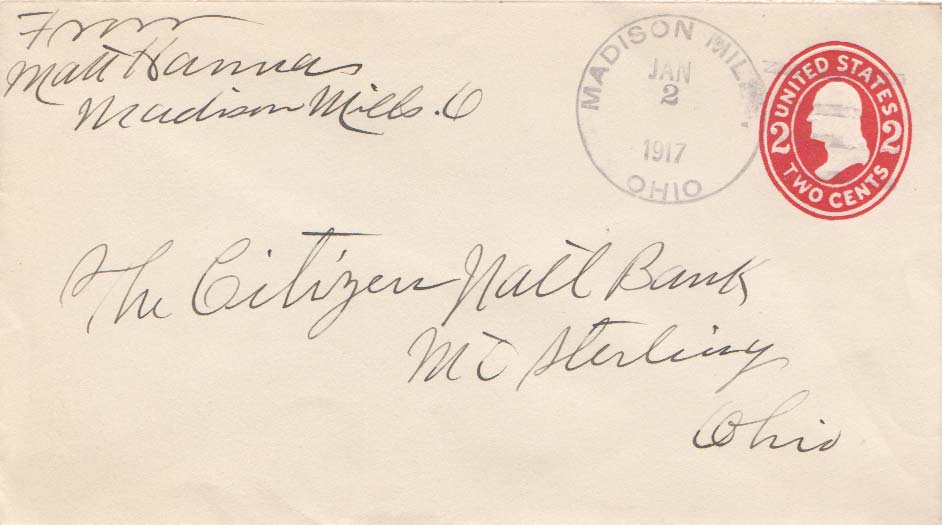 From
Matt Hannas
Madison Mills. O
MADISON MILLS
JAN
2
1917
OHIO
UNITED STATES
2 2
TWO CENTS
The Citizen Natl Bank
Mt Sterling
Ohio